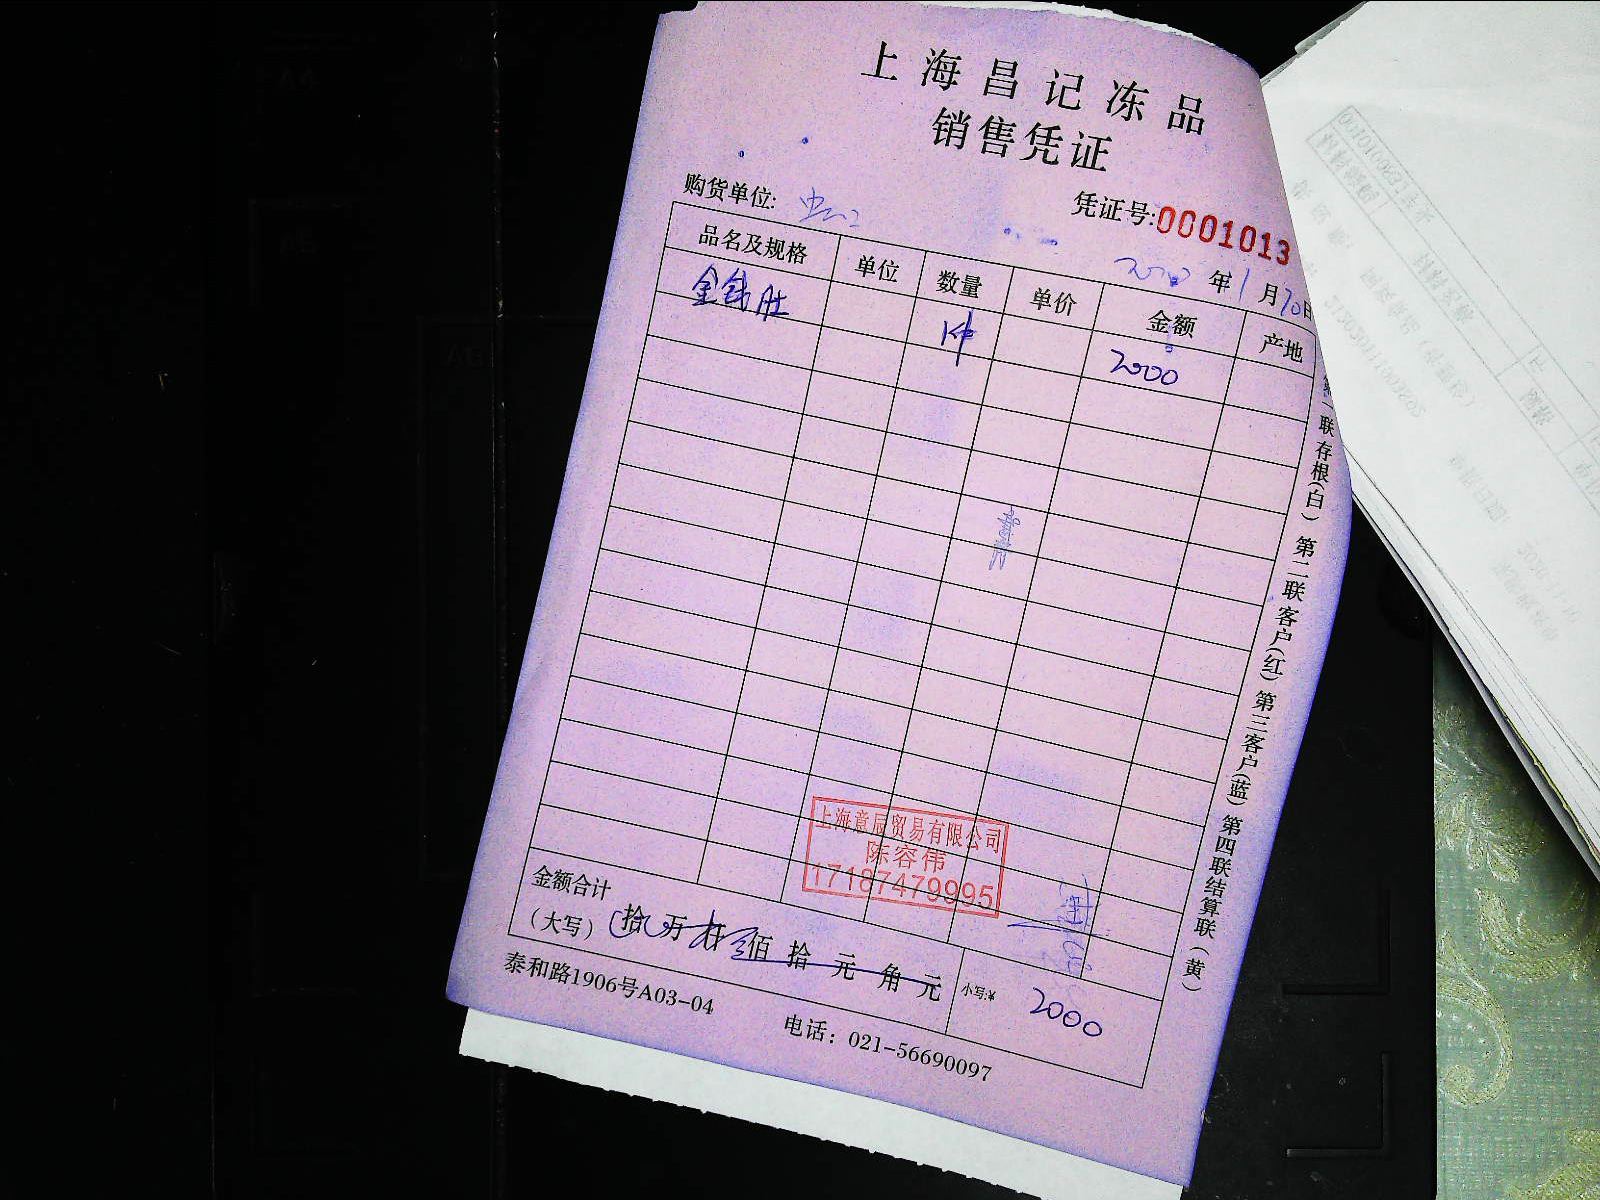 上海昌记冻品
销售凭证
购货单位:
凭证号:0001013
年1月20日
品名及规格 单位 数量 单价 金额 产地
金钱肚 1件 2000
第一联存根(白) 第二联客户(红) 第三客户(蓝) 第四联结算联(黄)
上海意辰贸易有限公司
陈容伟
17187479995
金额合计
(大写) 拾 万 仟 佰 拾 元 角 元 小写:¥ 2000
泰和路1906号A03-04 电话: 021-56690097